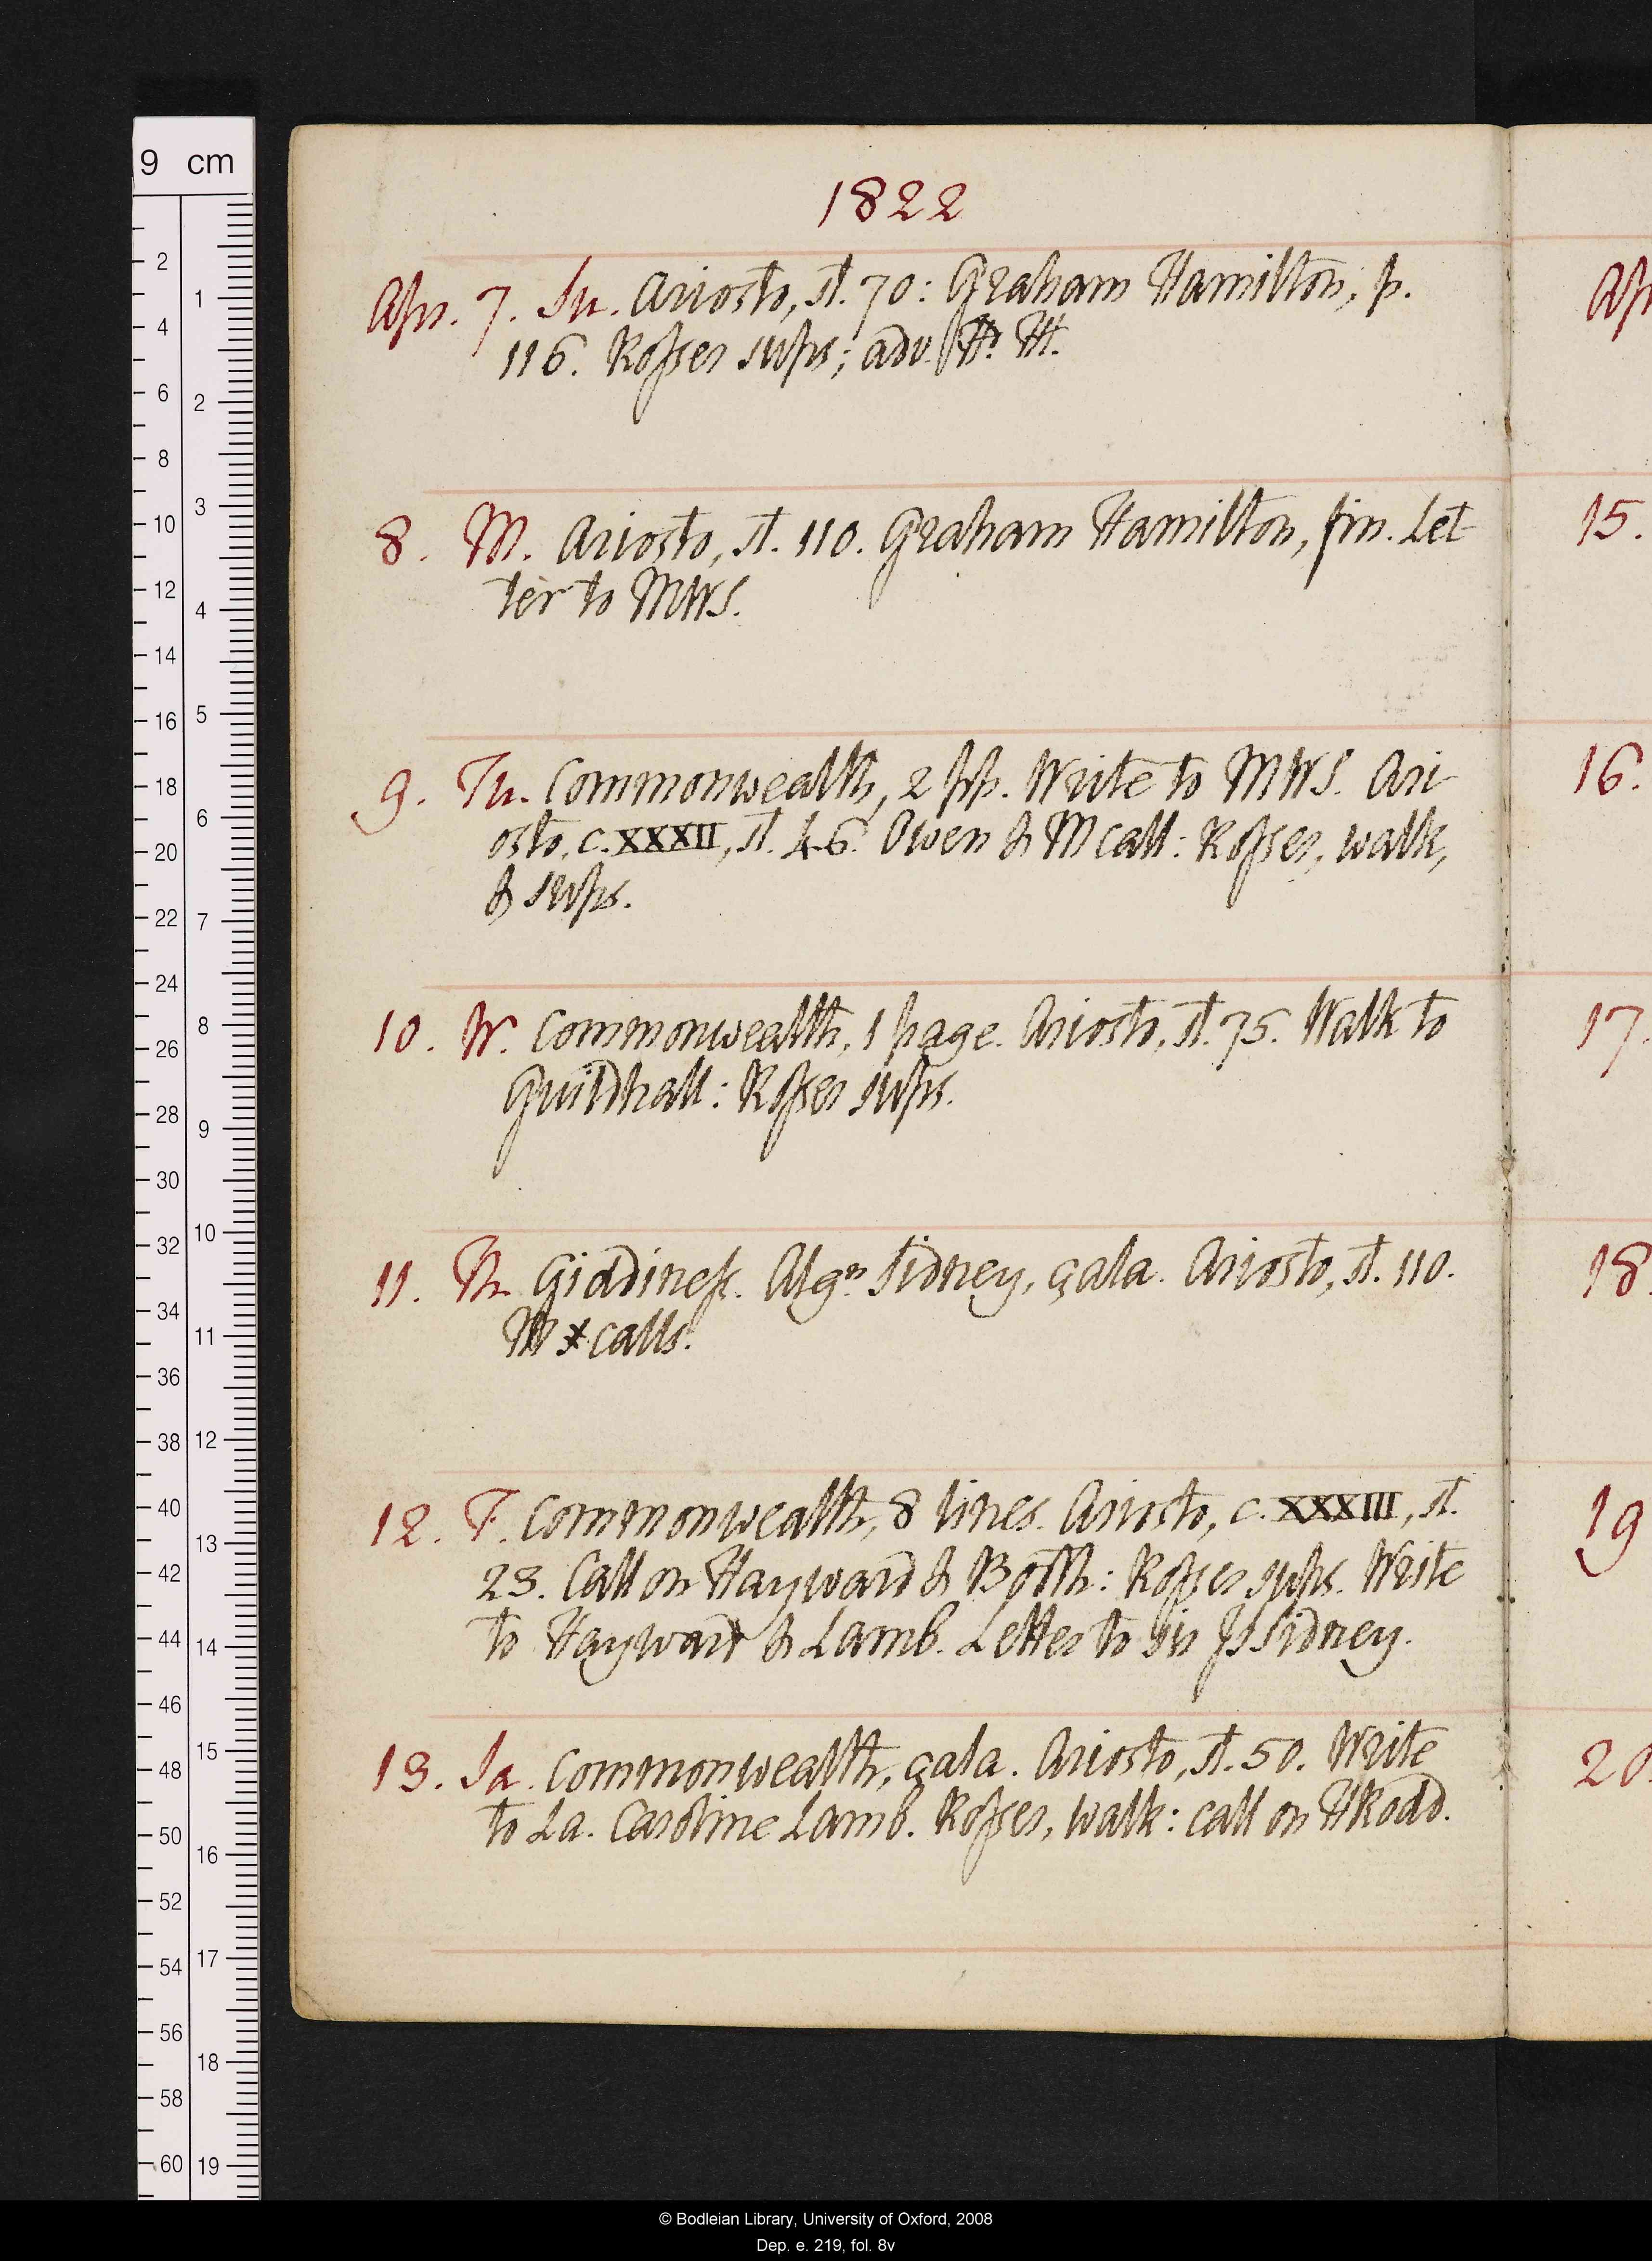 1822
Apr. 7. Su. Ariosto, st. 70: Graham Hamilton, p.
116. Rosser sups; adv. H. H.
8. M. Ariosto, st. 110. Graham Hamilton, fin. Let-
ter to MWS.
9. Tu. Commonwealth, 2 pp. Write to MWS. Ari-
osto, c. XXXII, st. 46. Owen & M call: Rosser, walk,
& sups.
10. W. Commonwealth, 1 page. Ariosto, st. 75. Walk to
Guildhall: Rosser sups.
11. Th. Giddiness. Algn Sidney, çala. Ariosto, st. 110.
M calls.
12. F. Commonwealth, 8 lines. Ariosto, c. XXXIII, st.
23. Call on Hayward & Booth: Rosser sups. Write
to Hayward & Lamb. Letter to sir J S Sidney.
13. Sa. Commonwealth, çala. Ariosto, st. 50. Write
to La. Caroline Lamb. Rosser, walk: call on HRodd.
Ap
15.
16.
17.
18.
19
20.
9 cm
2
4
6
8
10
12
14
16
18
20
22
24
26
28
30
32
34
36
38
40
42
44
46
48
50
52
54
56
58
60
1
2
3
4
5
6
7
8
9
10
11
12
13
14
15
16
17
18
19
© Bodleian Library, University of Oxford, 2008
Dep. e. 219, fol. 8v